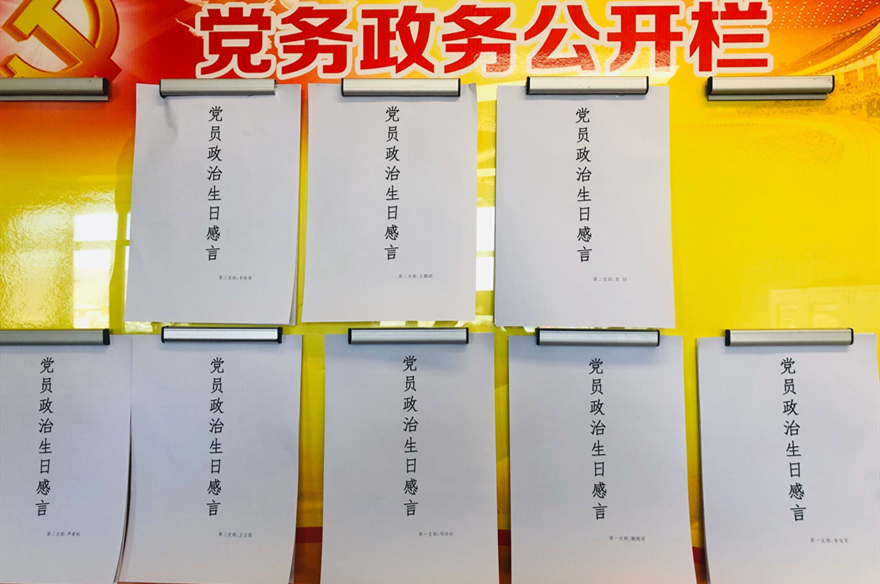 党务政务公开栏
党员政治生日感言
党员政治生日感言
党员政治生日感言
党员政治生日感言
党员政治生日感言
党员政治生日感言
党员政治生日感言
党员政治生日感言